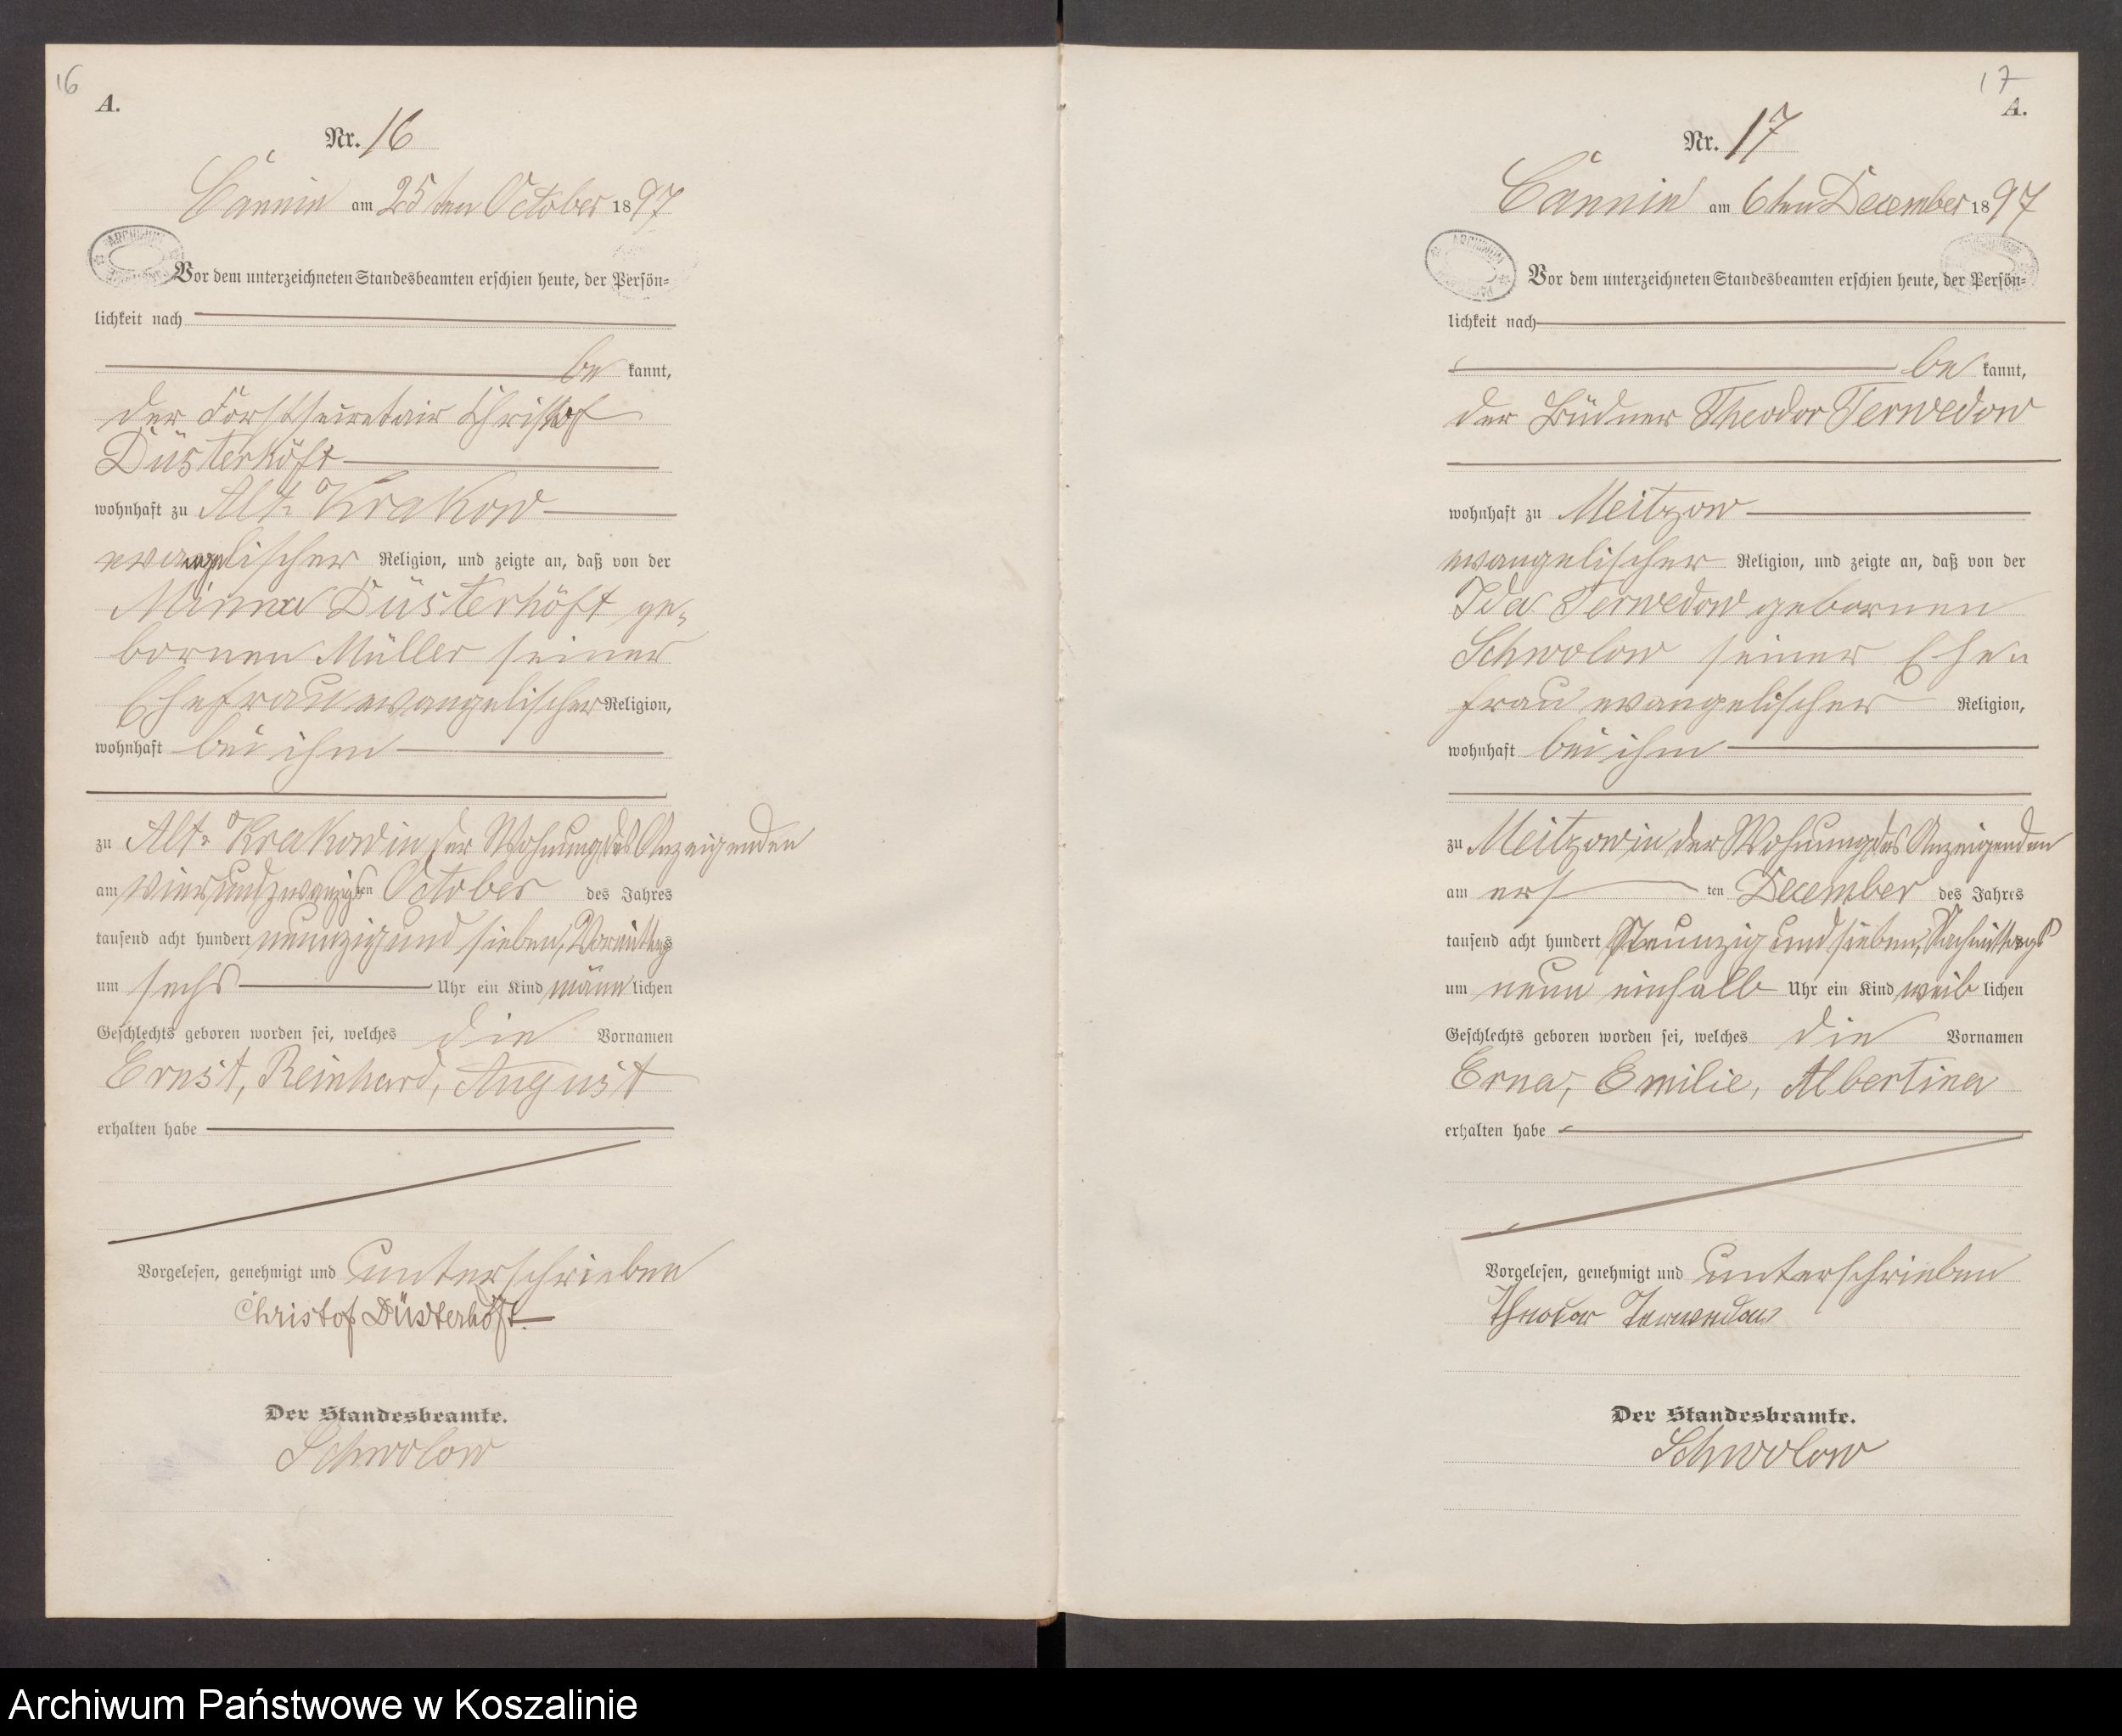 16
A.
Nr. 16
Cannin am 25ten October 1897
ARCHIWUM
Vor dem unterzeichneten Standesbeamten erschien heute, der Persön-
lichkeit nach
be kannt,
der Forstsecretair Christof
Düsterhöft
wohnhaft zu Alt- Krakow
evangelischer Religion, und zeigte an, daß von der
Minna Düsterhöft ge-
bornen Müller seiner
Ehefrau evangelischer Religion,
wohnhaft bei ihm
zu Alt- Krakow in der Wohnung des Anzeigenden
am vierundzwanzigsten October des Jahres
tausend acht hundert neunzig und sieben, Vormittags
um sechs Uhr ein Kind männ lichen
Geschlechts geboren worden sei, welches die Vornamen
Ernst, Reinhard, August
erhalten habe
Vorgelesen, genehmigt und unterschrieben
Christof Düsterhöft.
Der Standesbeamte.
Schwolow
17
A.
Nr. 17
Cannin am 6ten December 1897
ARCHIWUM
Vor dem unterzeichneten Standesbeamten erschien heute, der Persön-
lichkeit nach
be kannt,
der Büdner Theodor Terwedow
wohnhaft zu Meitzow
evangelischer Religion, und zeigte an, daß von der
Ida Terwedow gebornen
Schwolow seiner Ehe-
frau evangelischer Religion,
wohnhaft bei ihm
zu Meitzow in der Wohnung des Anzeigenden
am ers ten December des Jahres
tausend acht hundert Neunzig und sieben, Nachmittags
um neun einhalb Uhr ein Kind weib lichen
Geschlechts geboren worden sei, welches die Vornamen
Erna, Emilie, Albertina
erhalten habe
Vorgelesen, genehmigt und unterschrieben
Theodor Terwedow
Der Standesbeamte.
Schwolow
Archiwum Państwowe w Koszalinie